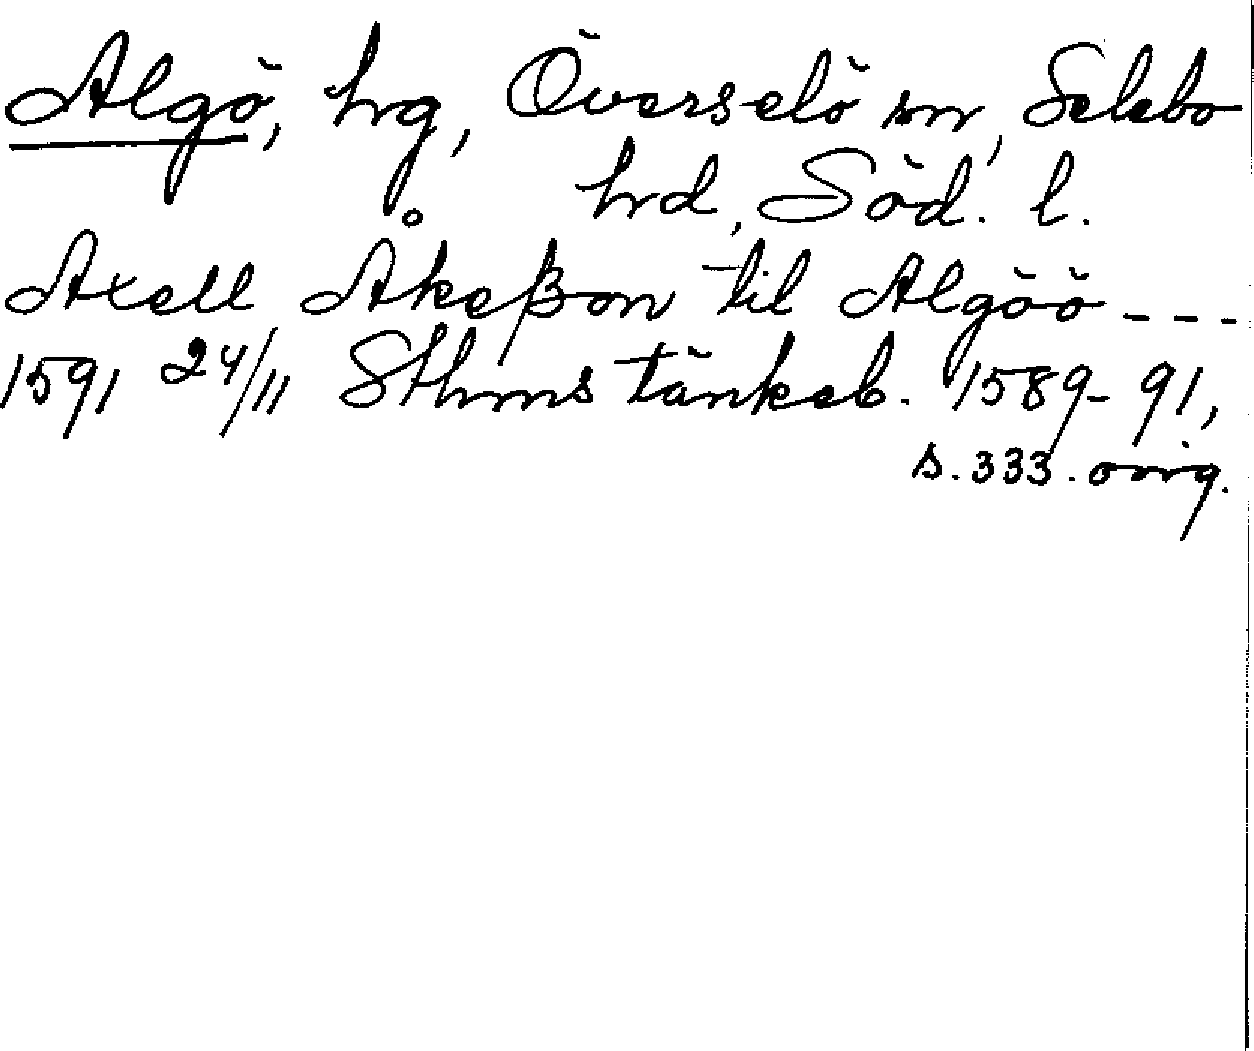 Algö, hrg, Överselö sn, Selebo
hrd, Söd. l.
Axell Åkeßon til Algöö - - -
1591 24/11 Sthms tänkeb. 1589-91,
s. 333. orig.